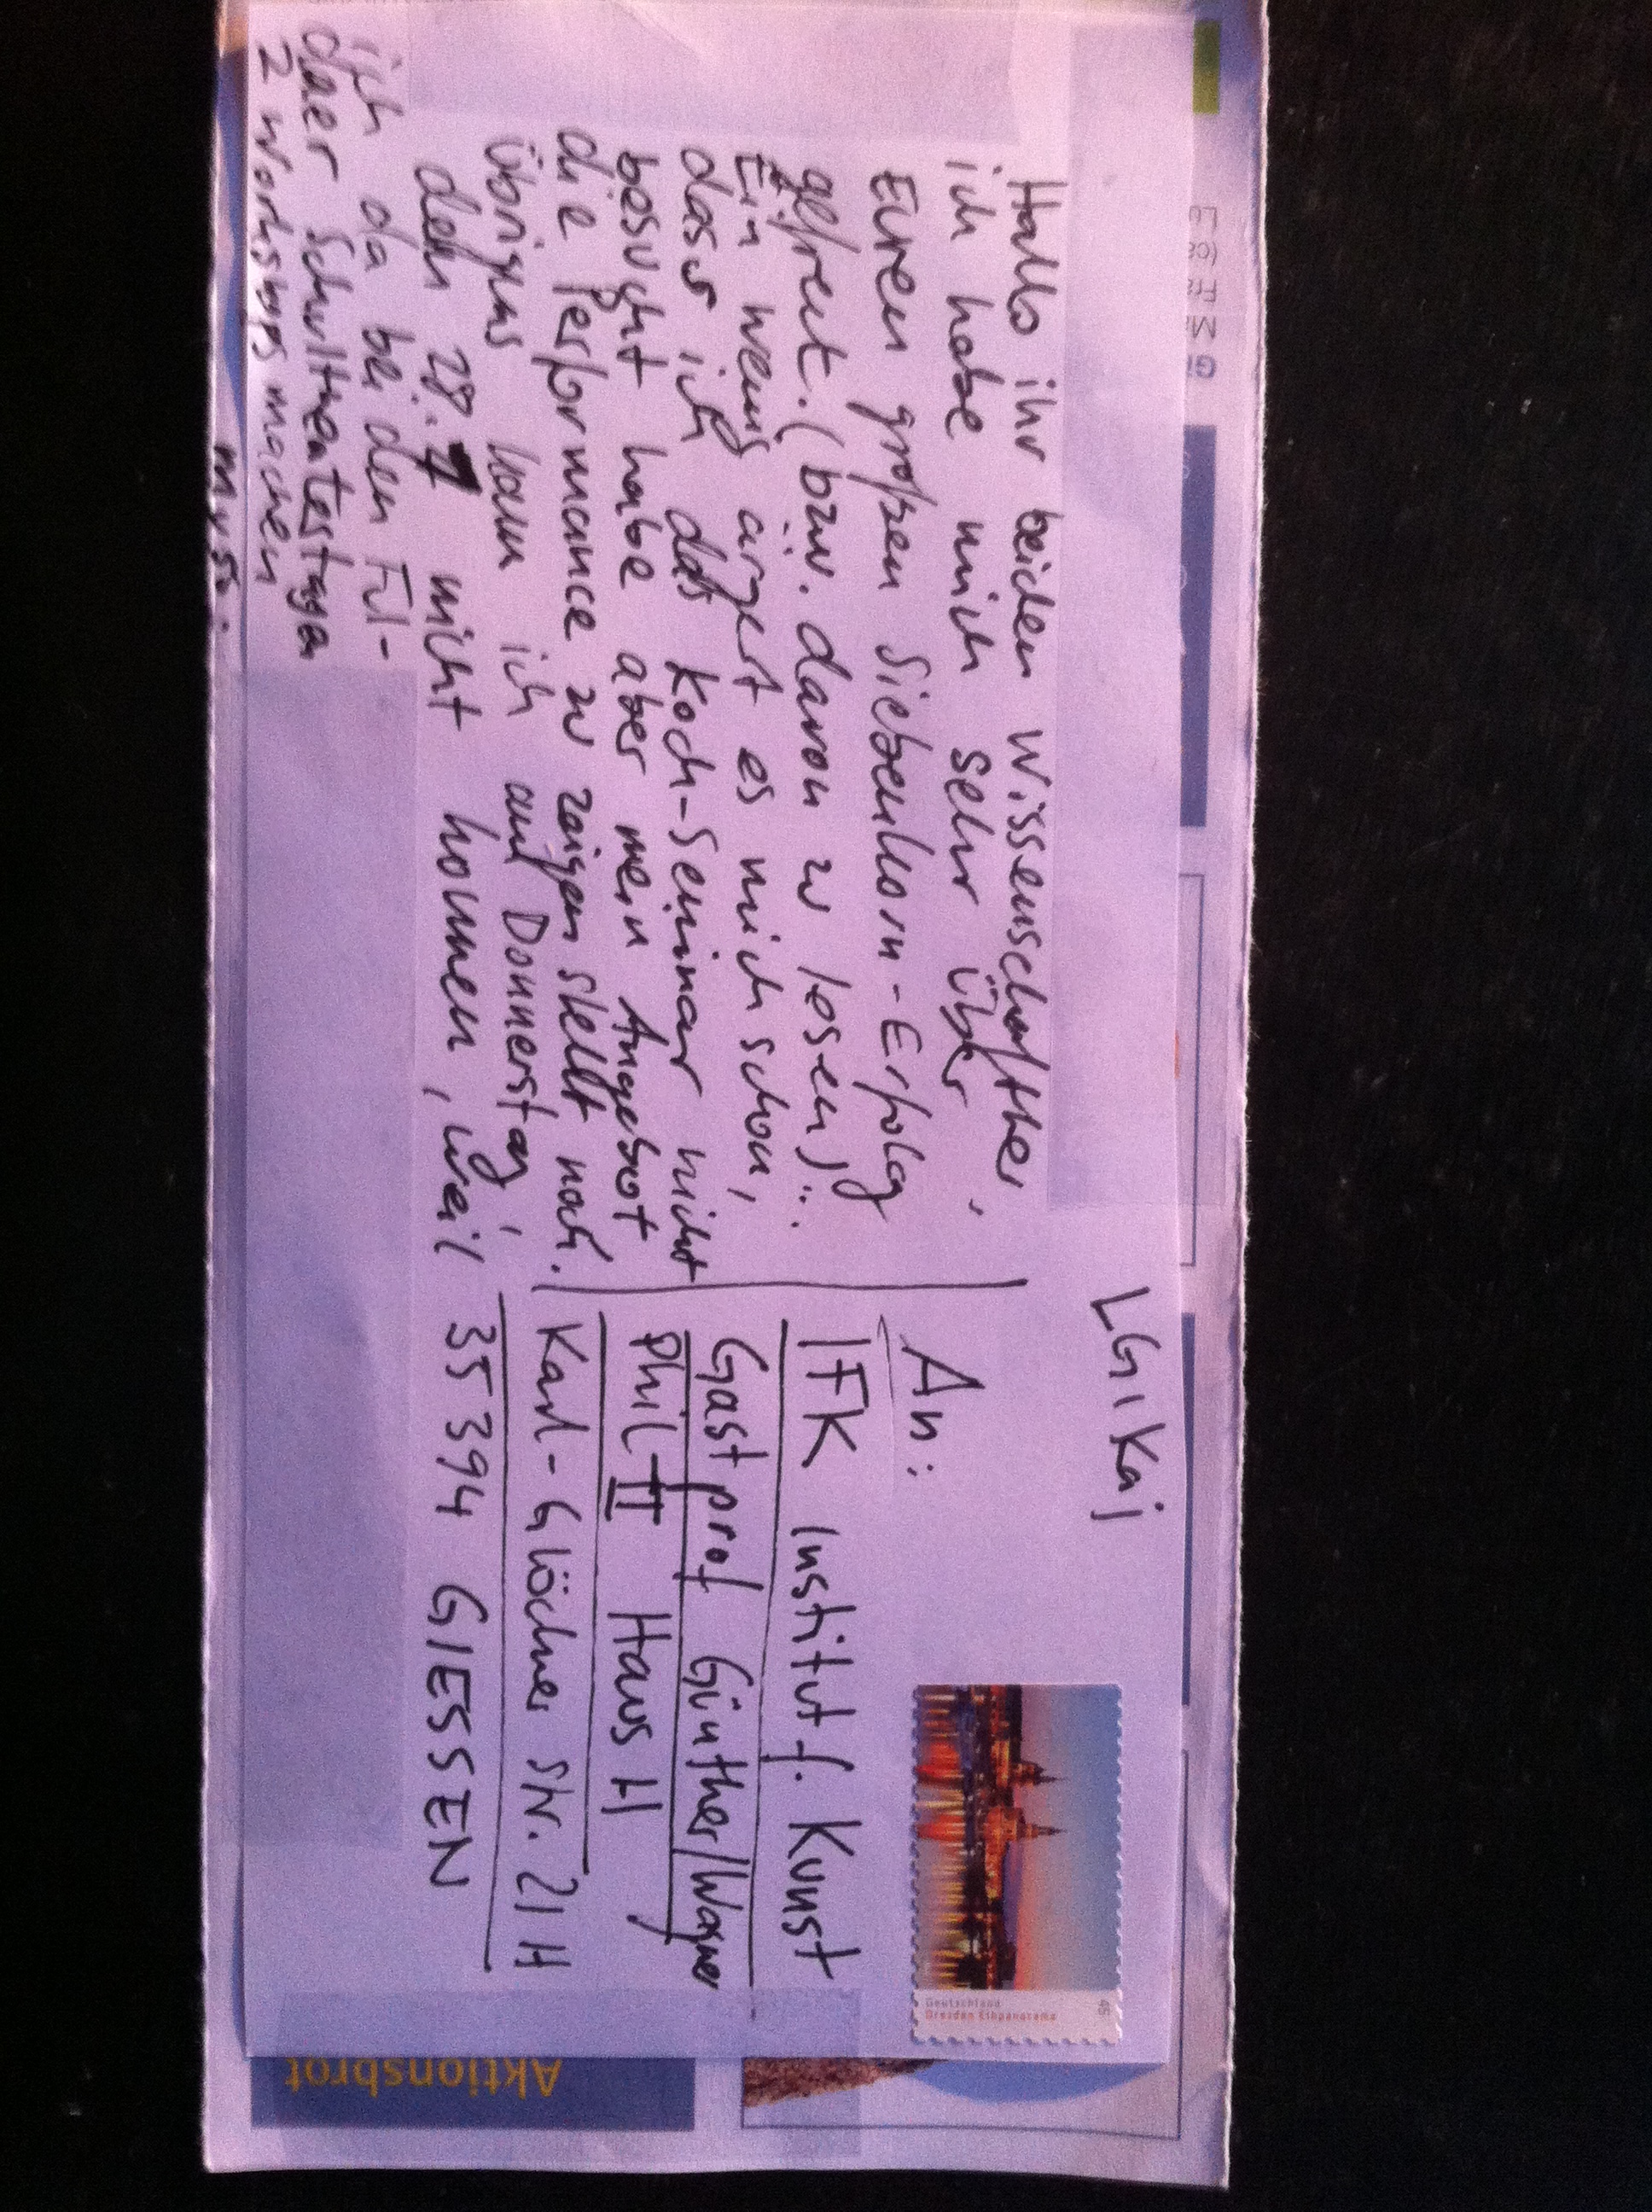 Hallo ihr beiden Wissenschaftler,
ich habe mich sehr über
Euren großen Siebenkorn-Erfolg
gefreut. (bzw. davon zu lesen)..
Ein wenig ärgert es mich schon,
dass ich das Koch-Seminar nicht
besucht habe aber mein Angebot
die Performance zu zeigen steht noch.
Übrigens kann ich am Donnerstag,
den 28.1 nicht kommen, weil
ich da bei den Ful-
daer Schultheatertagen
2 Workshops machen
muss.
LG, Kaj
An:
IFK Institut f. Kunst
Gastprof Günther/Wagner
Phil II Haus H
Karl-Glöckner Str. 21 H
35394 GIESSEN
Deutschland
Dresden Elbpanorama
45
Aktionsbrot